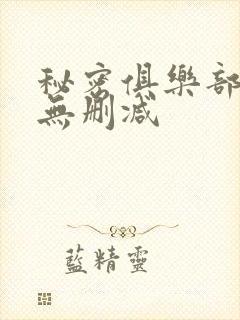 秘密俱樂部
無刪減
藍精靈